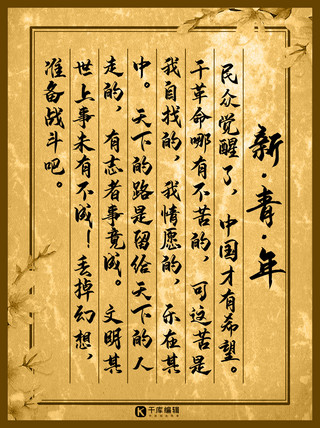 新·青·年
民众觉醒了，中国才有希望。
干革命哪有不苦的，可这苦是
我自找的，我情愿的，乐在其
中。天下的路是留给天下的人
走的，有志者事竟成。文明其
世上事未有不成！丢掉幻想，
准备战斗吧。
千库编辑